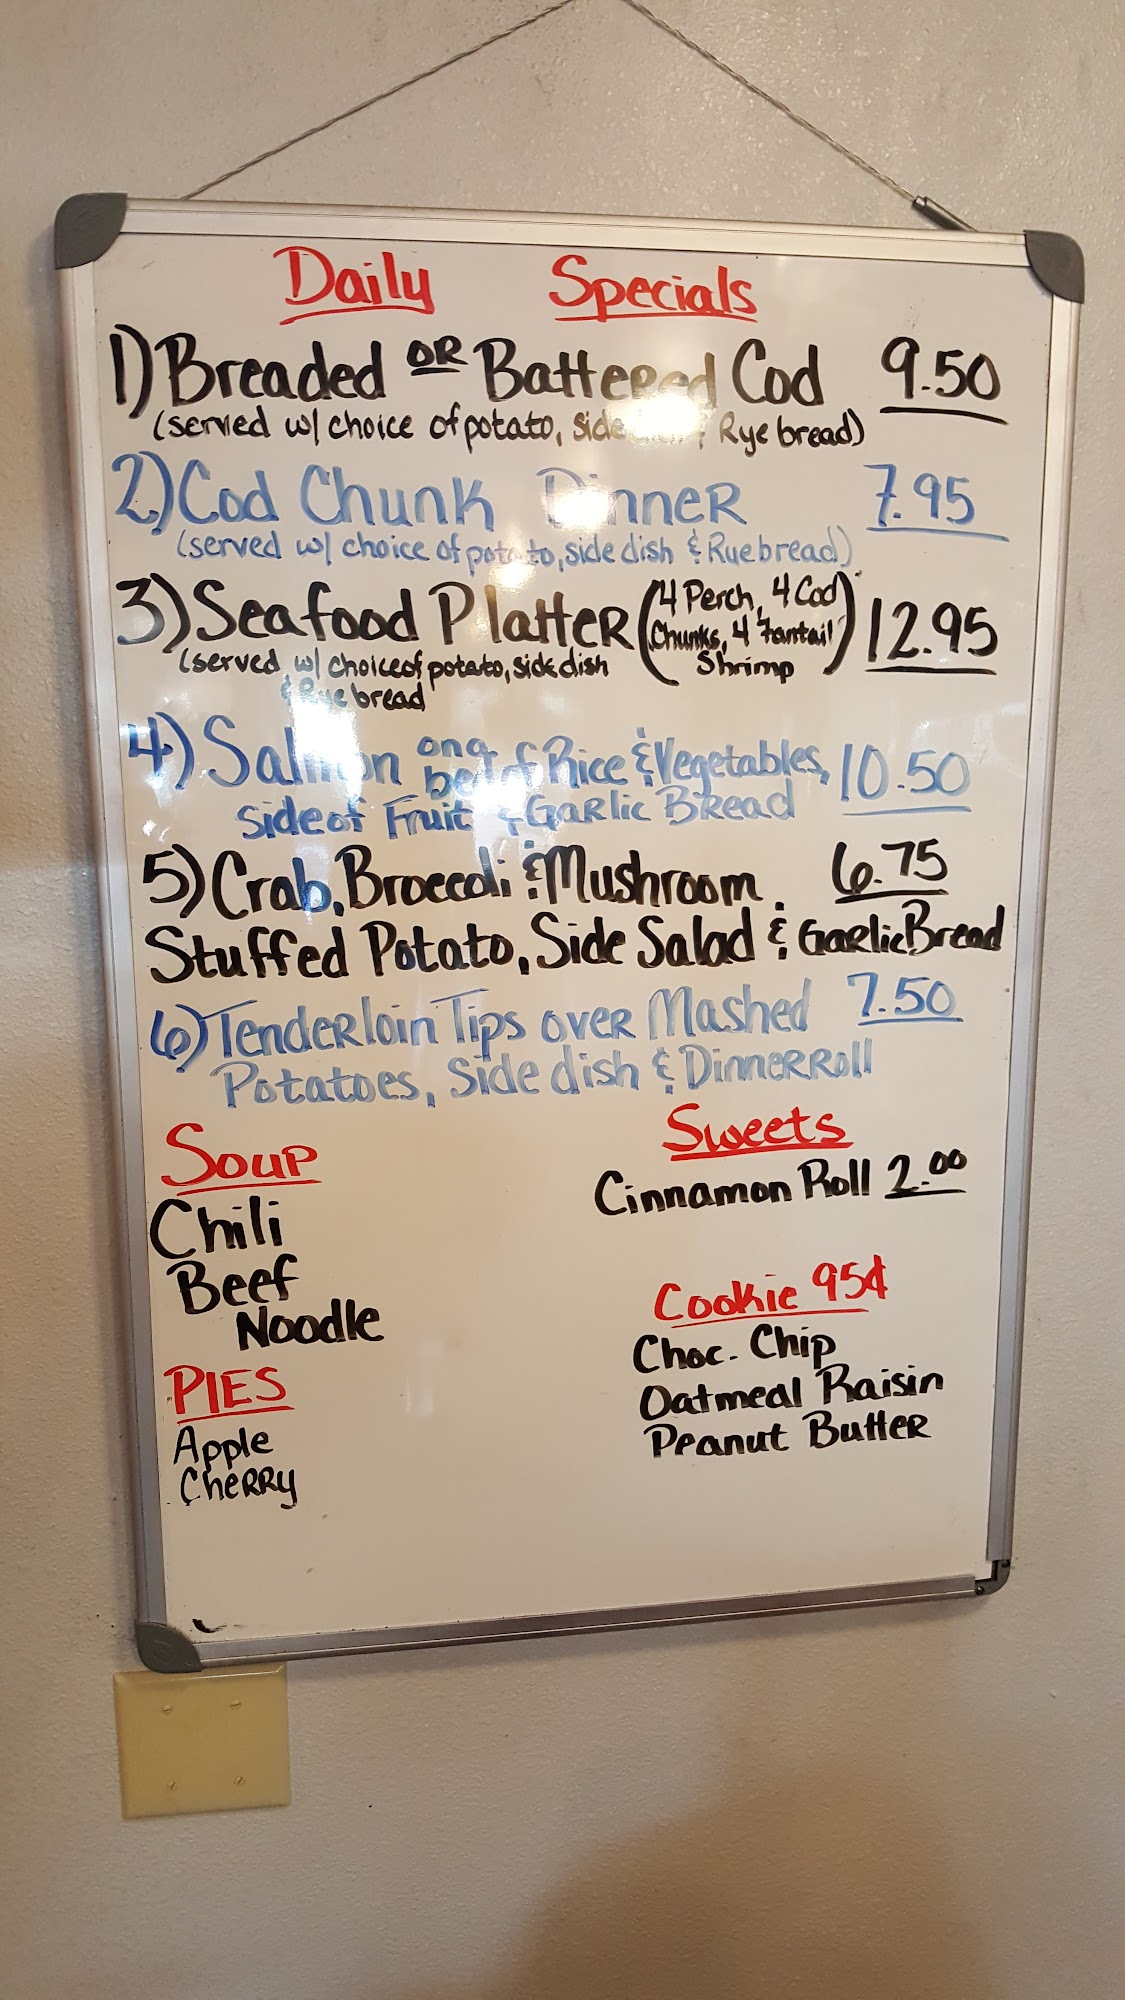 Daily Specials
1) Breaded OR Battered Cod 9.50
(served w/ choice of potato, side dish & Rye bread)
2) Cod Chunk Dinner 7.95
(served w/ choice of potato, side dish & Rye bread)
3) Seafood Platter (4 Perch, 4 Cod Chunks, 4 Fantail Shrimp) 12.95
(served w/ choice of potato, side dish
& Rye bread
4) Salmon on a bed of Rice & Vegetables, 10.50
side of Fruit & Garlic Bread
5) Crab, Broccoli & Mushroom 6.75
Stuffed Potato, Side Salad & Garlic Bread
6) Tenderloin Tips over Mashed 7.50
Potatoes, Side dish & Dinner Roll
Soup
Chili
Beef
Noodle
PIES
Apple
Cherry
Sweets
Cinnamon Roll 2.00
Cookie 95¢
Choc. Chip
Oatmeal Raisin
Peanut Butter